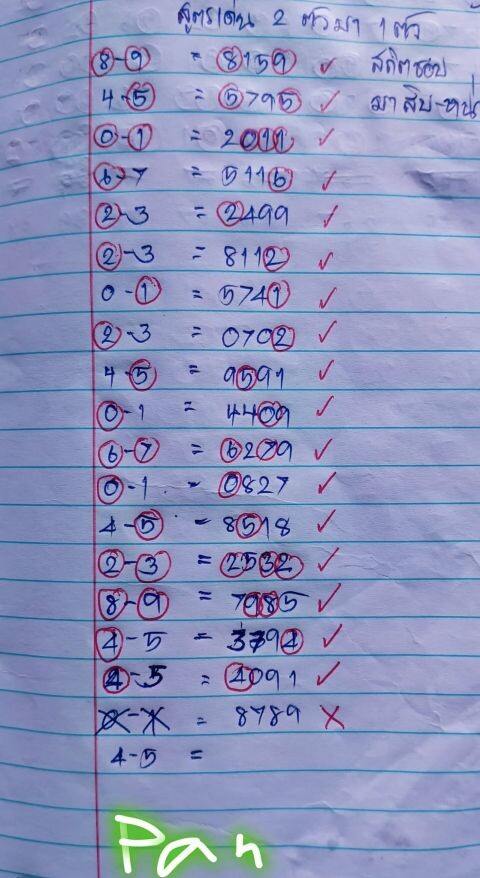 สูตรเด่น 2 ตัวมา 1 ตัว
8-9 = 8159 ✓ สถิตชอบ
4-5 = 5795 ✓ มาสิบ-หน่
0-1 = 2011 ✓
6-7 = 5116 ✓
2-3 = 2499 ✓
2-3 = 8112 ✓
0-1 = 5741 ✓
2-3 = 0702 ✓
4-5 = 9591 ✓
0-1 = 4409 ✓
6-7 = 6279 ✓
0-1 = 0827 ✓
4-5 = 8518 ✓
2-3 = 2532 ✓
8-9 = 7985 ✓
4-5 = 3794 ✓
4-5 = 4091 ✓
= 8789 ✗
4-5 =
Pan